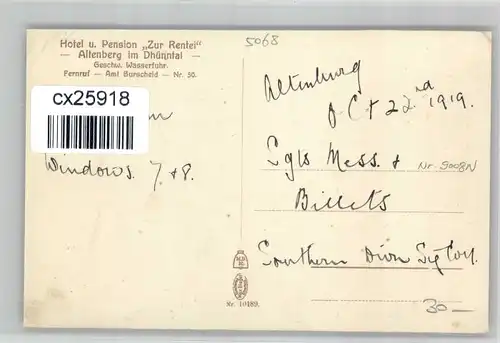 Hotel u. Pension „Zur Rentei"
— Altenberg im Dhünntal —
Geschw. Wasserfuhr.
Fernruf — Amt Burscheid — Nr. 30.
5068
cx25918
Windows. 7. + 8.
Altenburg
Oct 22nd 1919.
Sgts Mess. &
Nr. 9008N
Billets
Southern Divn Sig Coy.
30—
Nr. 10189.